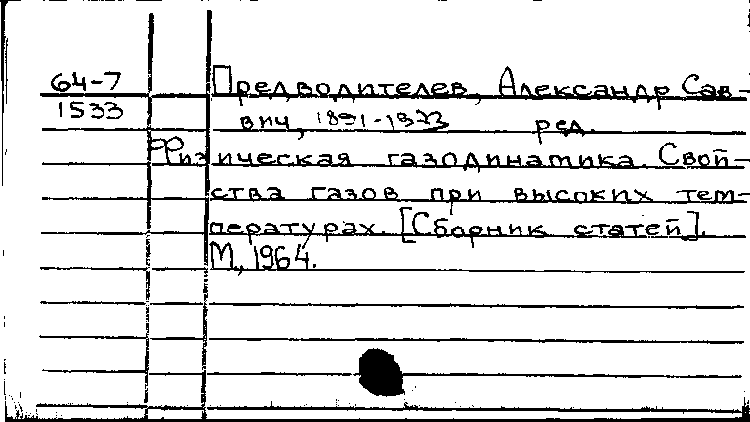 64-7
1533
Предводителев, Александр Сав-
вич, 1891-1973 ред.
Физическая газодинамика. Свой-
ства газов при высоких тем-
пературах. [Сборник статей].
М., 1964.